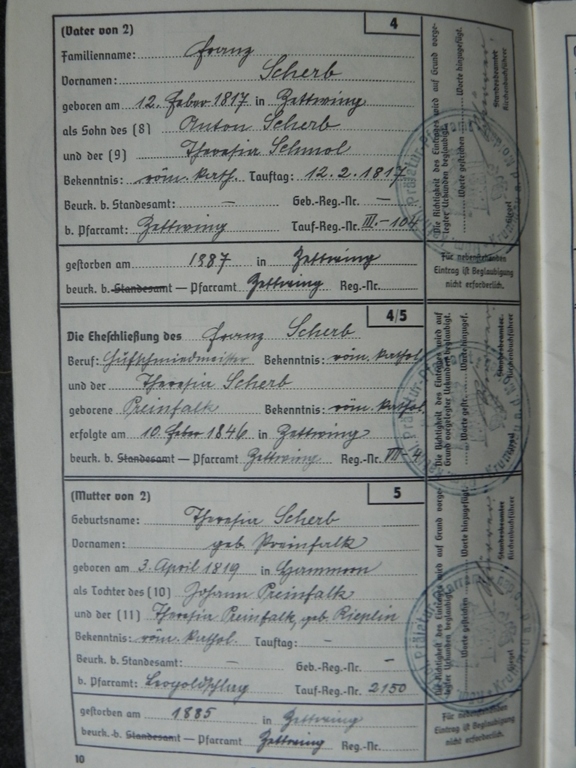 (Vater von 2) 4
Familienname: Franz
Vornamen: Scherb
geboren am 12. Feber 1817 in Zettwing
als Sohn des (8) Anton Scherb
und der (9) Theresia Schmol
Bekenntnis: röm. kath. Tauftag: 12.2.1817
Beurk. b. Standesamt: — Geb.-Reg.-Nr. —
b. Pfarramt: Zettwing Tauf-Reg.-Nr. III.-104
gestorben am 1887 in Zettwing
beurk. b. Standesamt — Pfarramt Zettwing Reg.-Nr.
4/5
Die Eheschließung des Franz Scherb
Beruf: Hufschmiedmeister Bekenntnis: röm. kathol.
und der Theresia Scherb
geborene Preinfalk Bekenntnis: röm. kathol.
erfolgte am 10. Feber 1846 in Zettwing
beurk. b. Standesamt — Pfarramt Zettwing Reg.-Nr.
(Mutter von 2) 5
Geburtsname: Theresia Scherb
Vornamen: geb. Preinfalk
geboren am 3. April 1819 in
als Tochter des (10) Johann Preinfalk
und der (11) Theresia Preinfalk, geb. Rieplin
Bekenntnis: röm. kathol. Tauftag: —
Beurk. b. Standesamt: — Geb.-Reg.-Nr. —
b. Pfarramt: Leopoldschlag Tauf-Reg.-Nr. 2150
gestorben am 1885 in Zettwing
beurk. b. Standesamt — Pfarramt Zettwing Reg.-Nr.
10
Die Richtigkeit des Eintrages wird auf Grund vorge-
legter Urkunden beglaubigt.
Worte gestrichen Worte hinzugefügt.
Standesbeamter
Kirchenbuchführer
Für nebenstehenden
Eintrag ist Beglaubigung
nicht erforderlich.
Die Richtigkeit des Eintrages wird auf
Grund vorgelegter Urkunden beglaubigt.
Worte gestr. Worte hinzugef.
Standesbeamter
Kirchenbuchführer
Die Richtigkeit des Eintrages wird auf Grund vorge-
legter Urkunden beglaubigt.
Worte gestrichen Worte hinzugefügt.
Standesbeamter
Kirchenbuchführer
Für nebenstehenden
Eintrag ist Beglaubigung
nicht erforderlich.